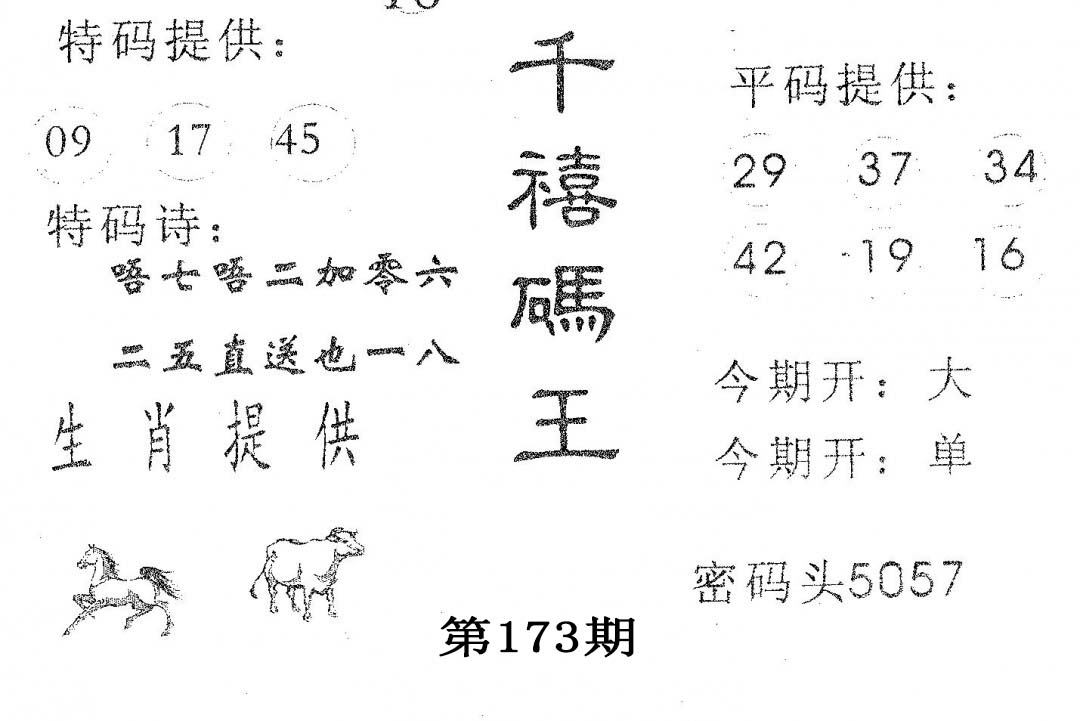 特码提供：
09 17 45
特码诗：
唔七唔二加零六
二五直送也一八
生肖提供
千禧碼王
平码提供：
29 37 34
42 19 16
今期开：大
今期开：单
密码头5057
第173期